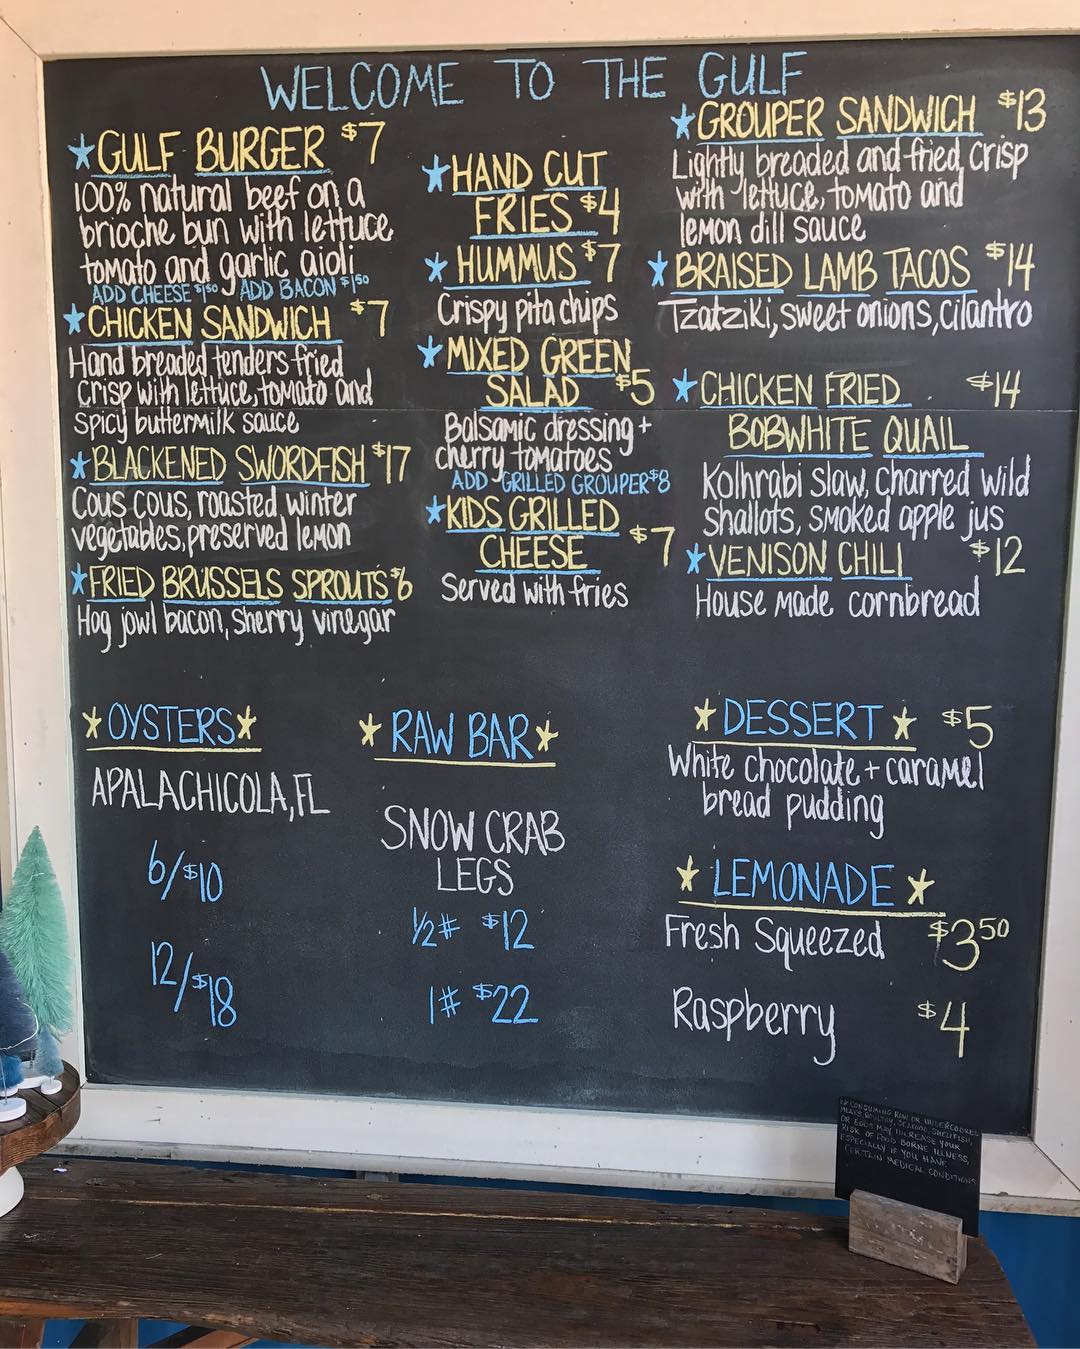 WELCOME TO THE GULF
GULF BURGER $7
100% natural beef on a
brioche bun with lettuce
tomato and garlic aioli
ADD CHEESE $1.50 ADD BACON $1.50
CHICKEN SANDWICH $7
Hand breaded tenders fried
crisp with lettuce, tomato and
spicy buttermilk sauce
BLACKENED SWORDFISH $17
Cous cous, roasted winter
vegetables, preserved lemon
FRIED BRUSSELS SPROUTS $6
Hog jowl bacon, Sherry vinegar
HAND CUT
FRIES $4
HUMMUS $7
Crispy pita chips
MIXED GREEN
SALAD $5
Balsamic dressing +
cherry tomatoes
ADD GRILLED GROUPER $8
KIDS GRILLED
CHEESE $7
Served with fries
GROUPER SANDWICH $13
Lightly breaded and fried crisp
with lettuce, tomato and
lemon dill sauce
BRAISED LAMB TACOS $14
Tzatziki, sweet onions, cilantro
CHICKEN FRIED $14
BOBWHITE QUAIL
Kolhrabi slaw, charred wild
shallots, smoked apple jus
VENISON CHILI $12
House made cornbread
OYSTERS
APALACHICOLA, FL
6/$10
12/$18
RAW BAR
SNOW CRAB
LEGS
1/2# $12
1# $22
DESSERT $5
White chocolate + caramel
bread pudding
LEMONADE
Fresh Squeezed $3.50
Raspberry $4
** CONSUMING RAW OR UNDERCOOKED
MEATS, POULTRY, SEAFOOD, SHELLFISH,
OR EGGS MAY INCREASE YOUR
RISK OF FOOD BORNE ILLNESS,
ESPECIALLY IF YOU HAVE
CERTAIN MEDICAL CONDITIONS